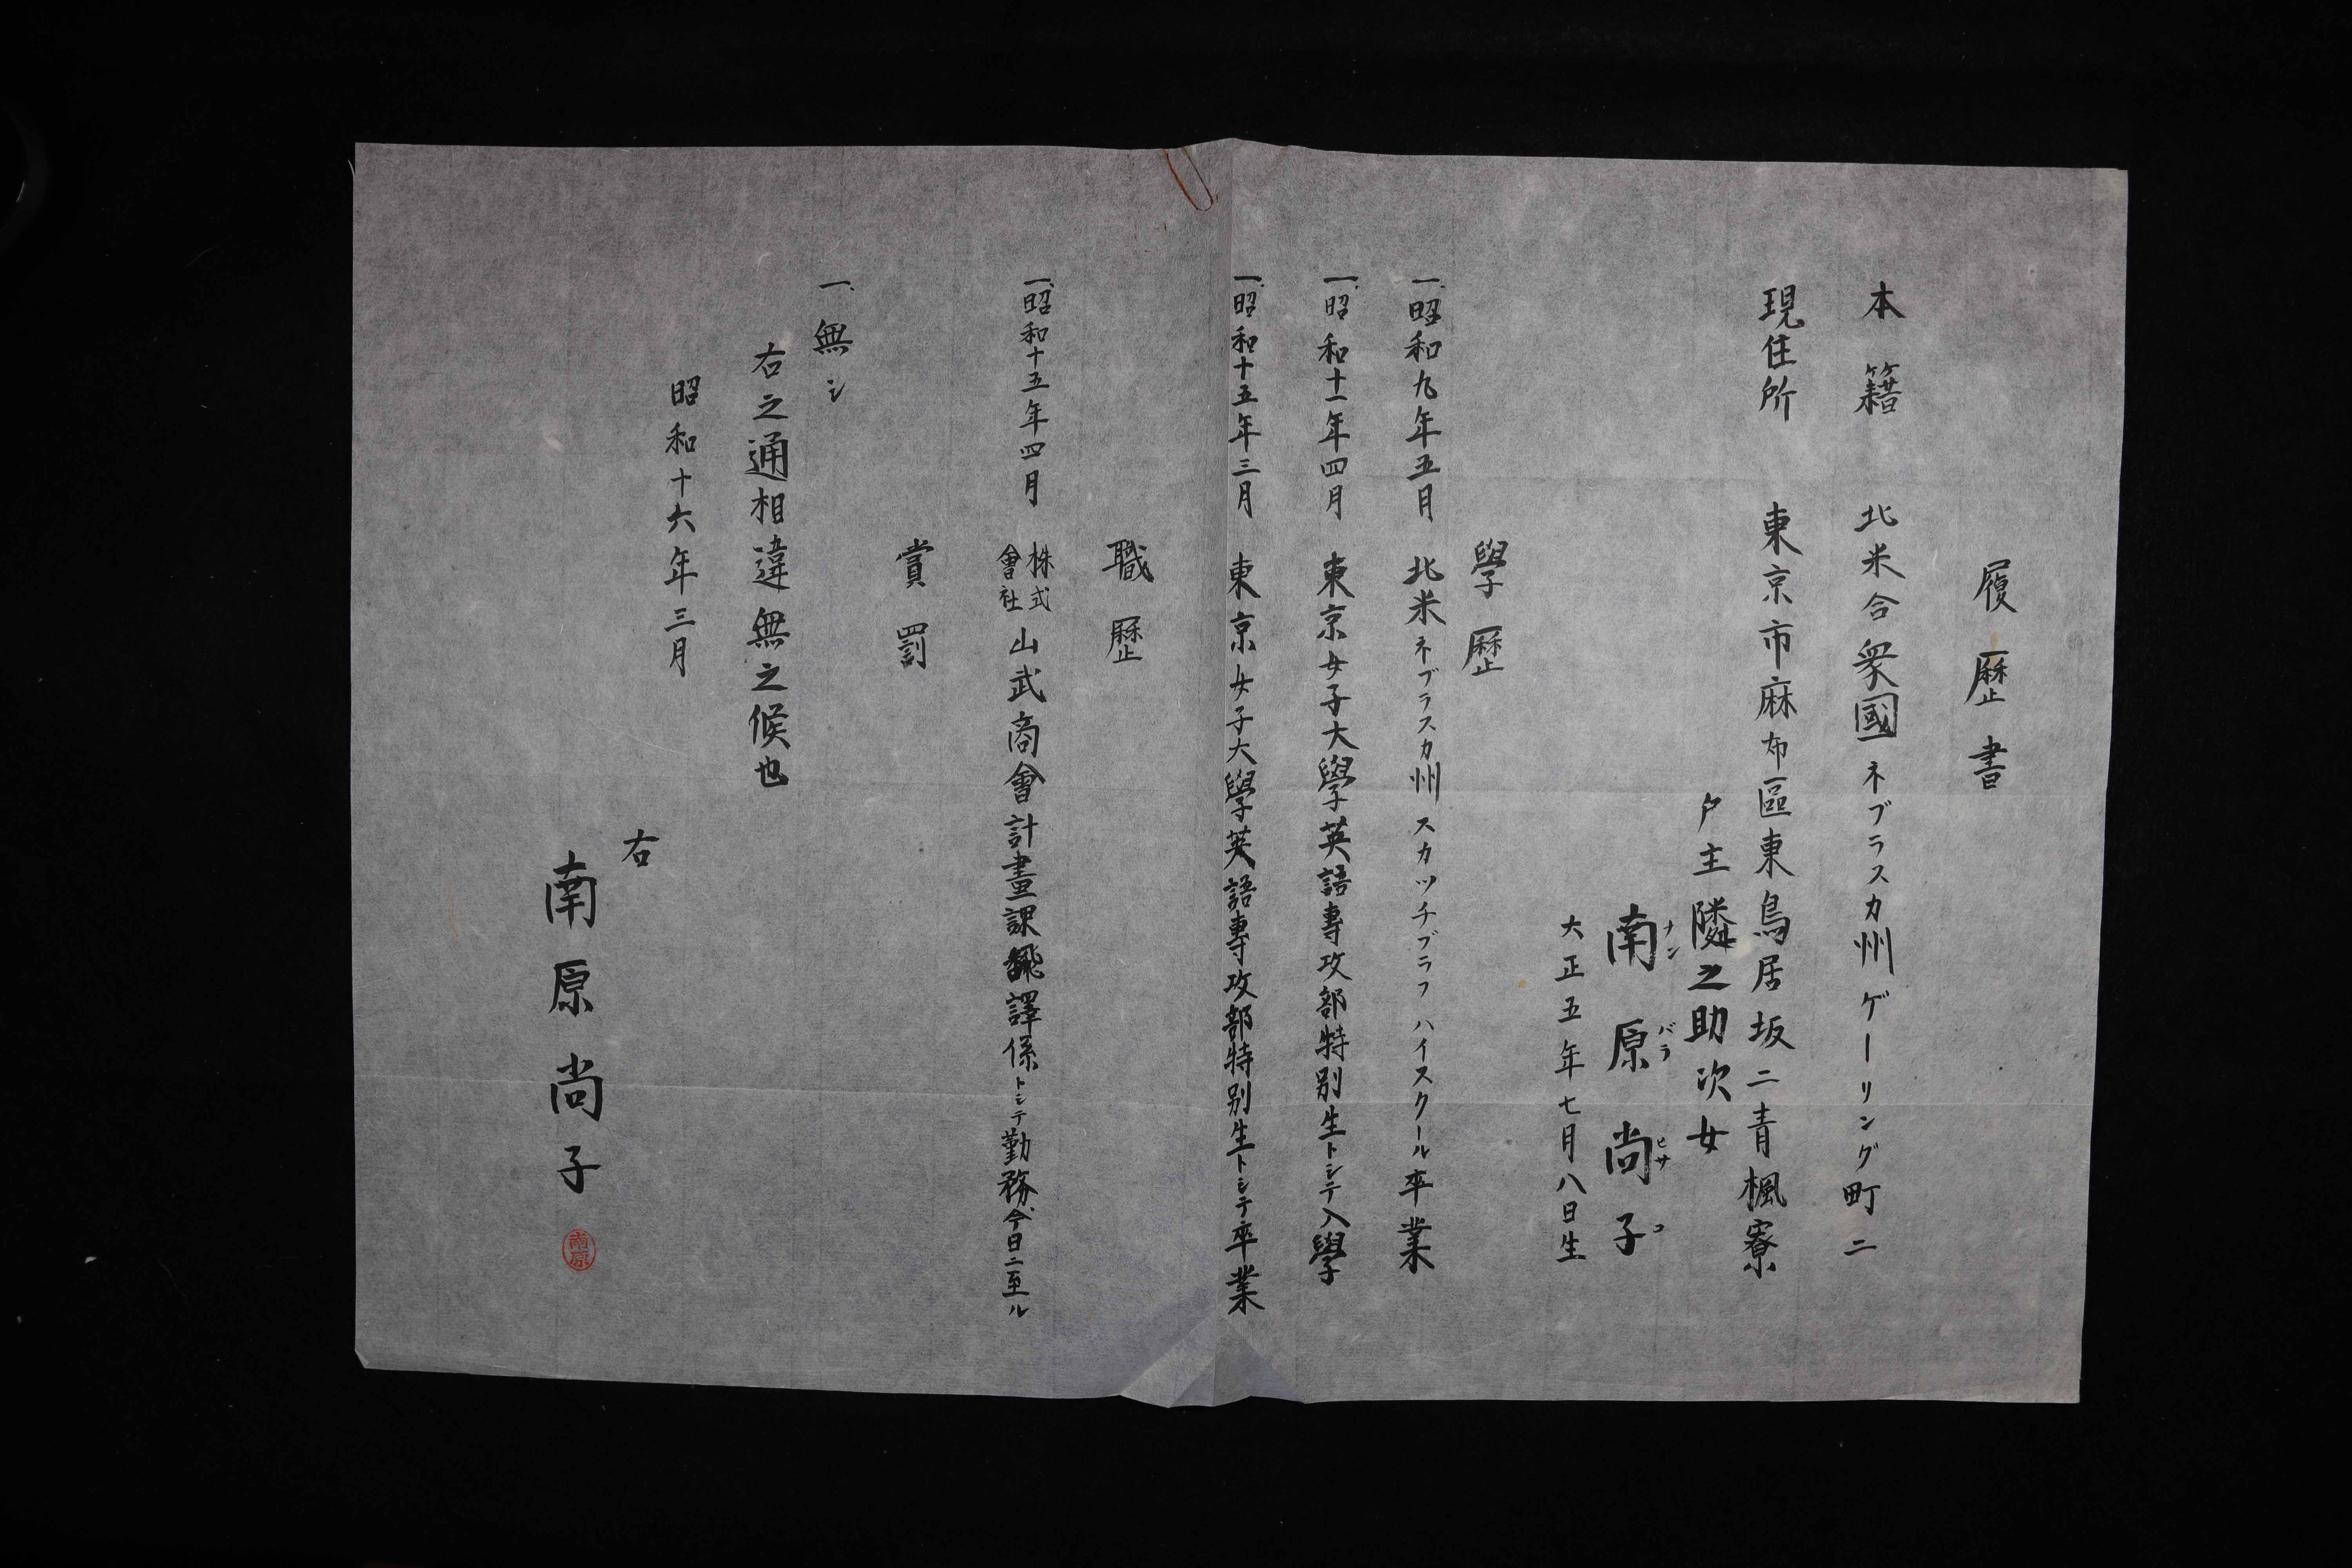 履歴書
本籍 北米合衆國ネブラスカ州ゲーリング町二
現住所 東京市麻布區東鳥居坂二青楓寮
戸主隣之助次女
南原尚子
ナンバラヒサコ
大正五年七月八日生
學歴
一、昭和九年五月 北米ネブラスカ州スカツチブラフハイスクール卒業
一、昭和十一年四月 東京女子大學英語專攻部特別生トシテ入學
一、昭和十五年三月 東京女子大學英語專攻部特別生トシテ卒業
職歴
一、昭和十五年四月 株式會社山武商會計畫課飜譯係トシテ勤務今日ニ至ル
賞罰
一、無シ
右之通相違無之候也
昭和十六年三月
右
南原尚子
南原